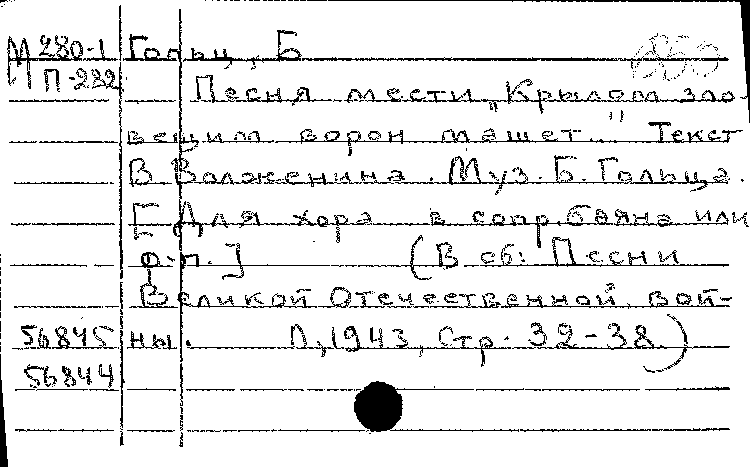 М 280-1 Гольц, Б
П-282 Песня мести „Крылом зло-
вещим ворон машет..." Текст
В Волженина. Муз. Б. Гольца.
[Для хора в сопр. баяна или
ф-п.] (В сб: Песни
Великой Отечественной вой-
56845 ны. Л, 1943, Стр. 32-38.)
56844